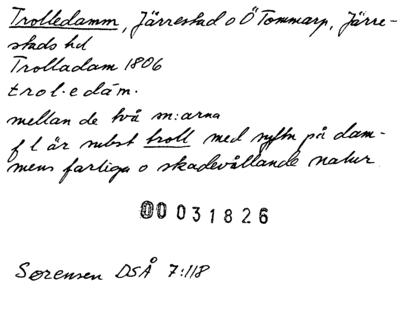 Trolledamm, Järrestad o Ö Tommarp, Järre-
stads hd
Trolladam 1806
trol·edám·
mellan de två m:arna
f l är subst troll med syftn på dam-
mens farliga o skadevållande natur
00031826
Sørensen DSÅ 7:118